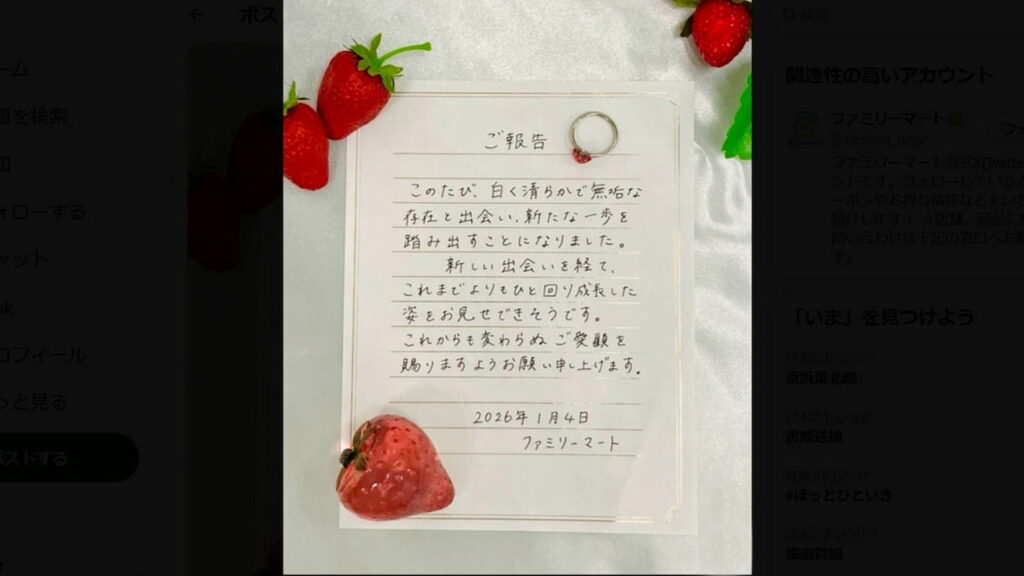 ご報告
このたび、白く清らかで無垢な
存在と出会い、新たな一歩を
踏み出すことになりました。
新しい出会いを経て、
これまでよりもひと回り成長した
姿をお見せできそうです。
これからも変わらぬご愛顧を
賜りますようお願い申し上げます。
2026年1月4日
ファミリーマート
検索
関連性の高いアカウント
ファミリーマート
@famima_now
ファミリーマート公式X(Twitter
す。
「いま」を見つけよう
日本のトレンド
京浜東北線
日本のトレンド
書類送検
#ほっとひといき
日本のトレンド
横須賀線
を検索
ォローする
ャット
ロフィール
っと見る
ポストする